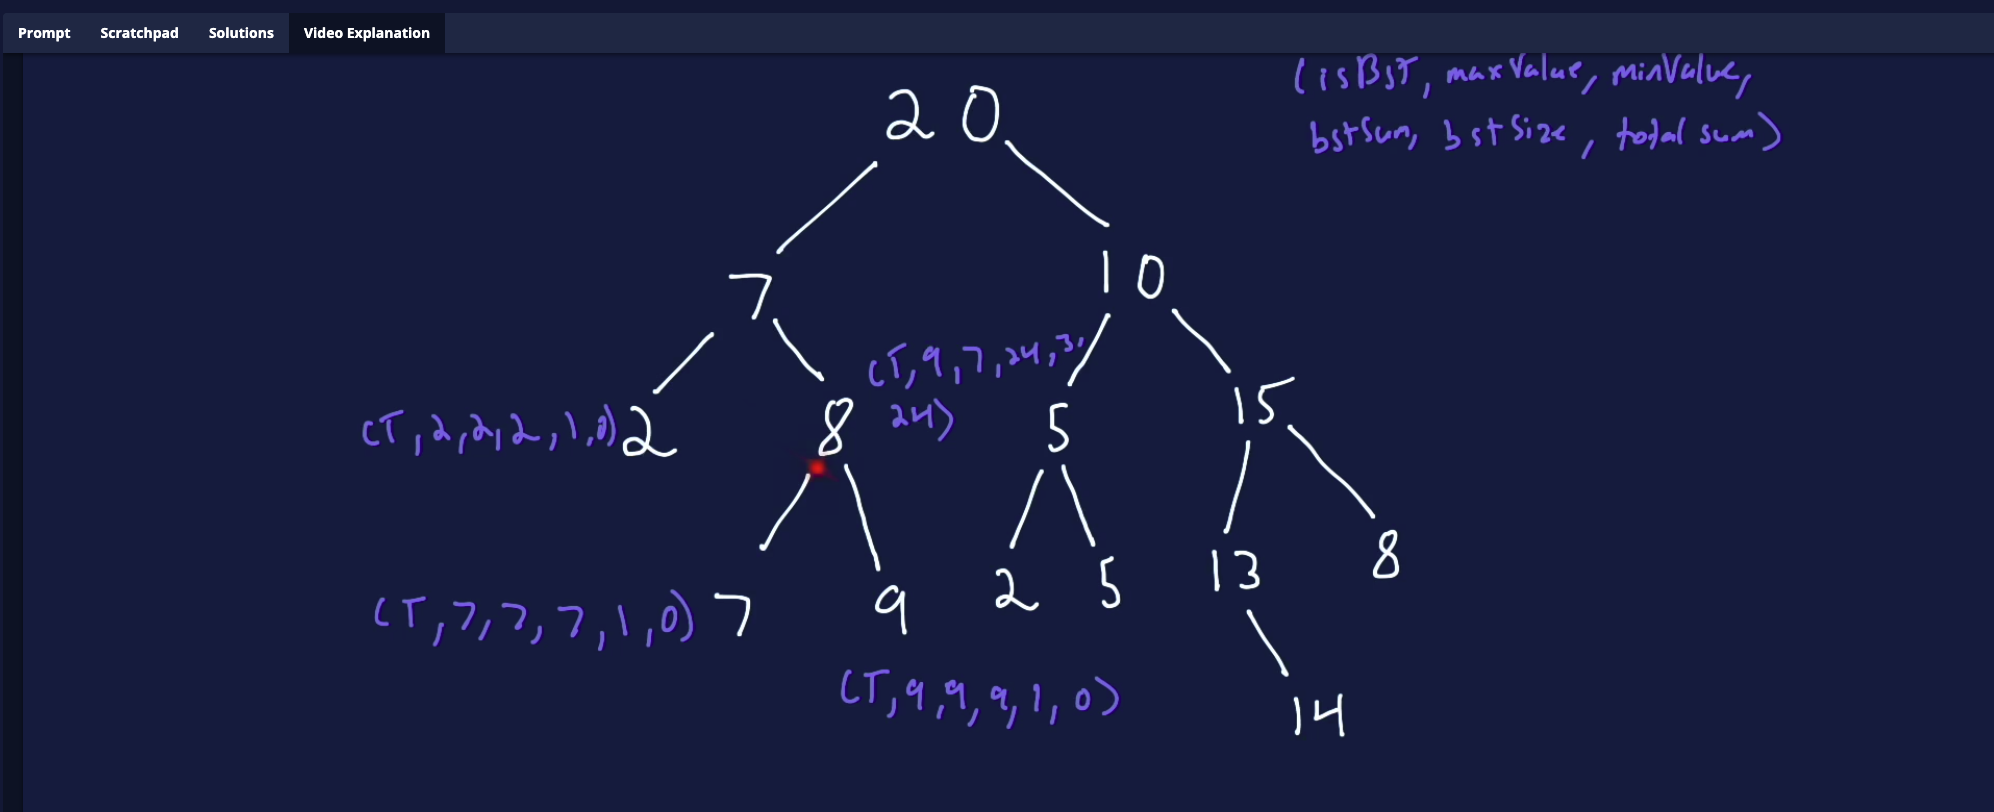 Prompt Scratchpad Solutions Video Explanation
(isBST, maxValue, minValue,
bstSum, bstSize, total sum)
20
7 10
(T, 9, 7, 24, 3,
24)
(T, 2, 2, 2, 1, 0) 2 8 5 15
(T, 7, 7, 7, 1, 0) 7 9 2 5 13 8
(T, 9, 9, 9, 1, 0)
14